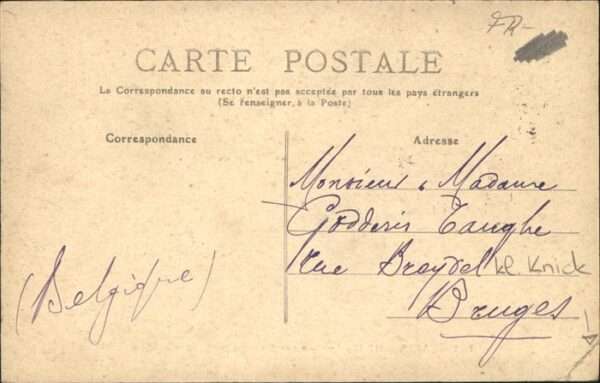 FR-
CARTE POSTALE
La Correspondance au recto n'est pas acceptée par tous les pays étrangers
(Se renseigner, à la Poste)
Correspondance
Adresse
Monsieur & Madame
Godderis Tanghe
rue Breydel kl. Knick
Bruges
(Belgique)